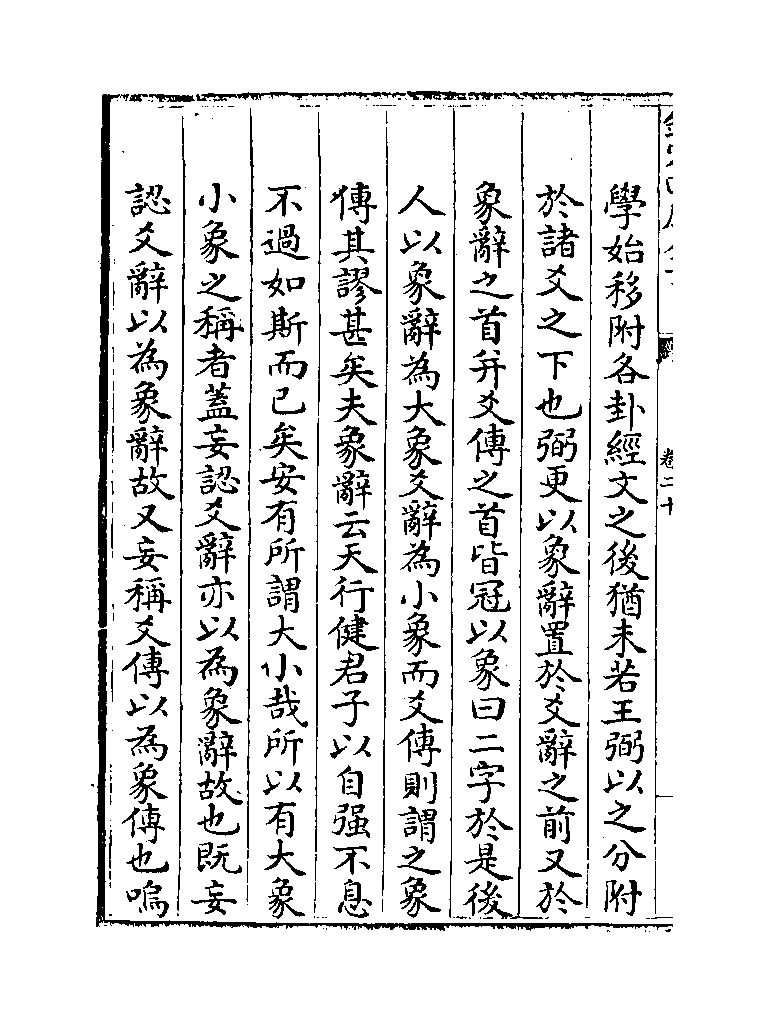 學始移附各卦經文之後猶未若王弼以之分附
於諸爻之下也弼更以象辭置於爻辭之前又於
象辭之首并爻傳之首皆冠以象曰二字於是後
人以象辭為大象爻辭為小象而爻傳則謂之象
傳其謬甚矣夫象辭云天行健君子以自强不息
不過如斯而已矣安有所謂大小哉所以有大象
小象之稱者蓋妄認爻辭亦以為象辭故也既妄
認爻辭以為象辭故又妄稱爻傳以為象傳也嗚
卷二十